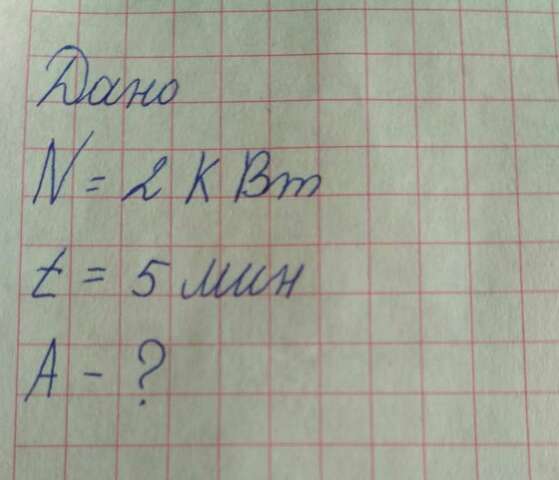 Дано
N = 2 к Вт
t = 5 мин
A - ?